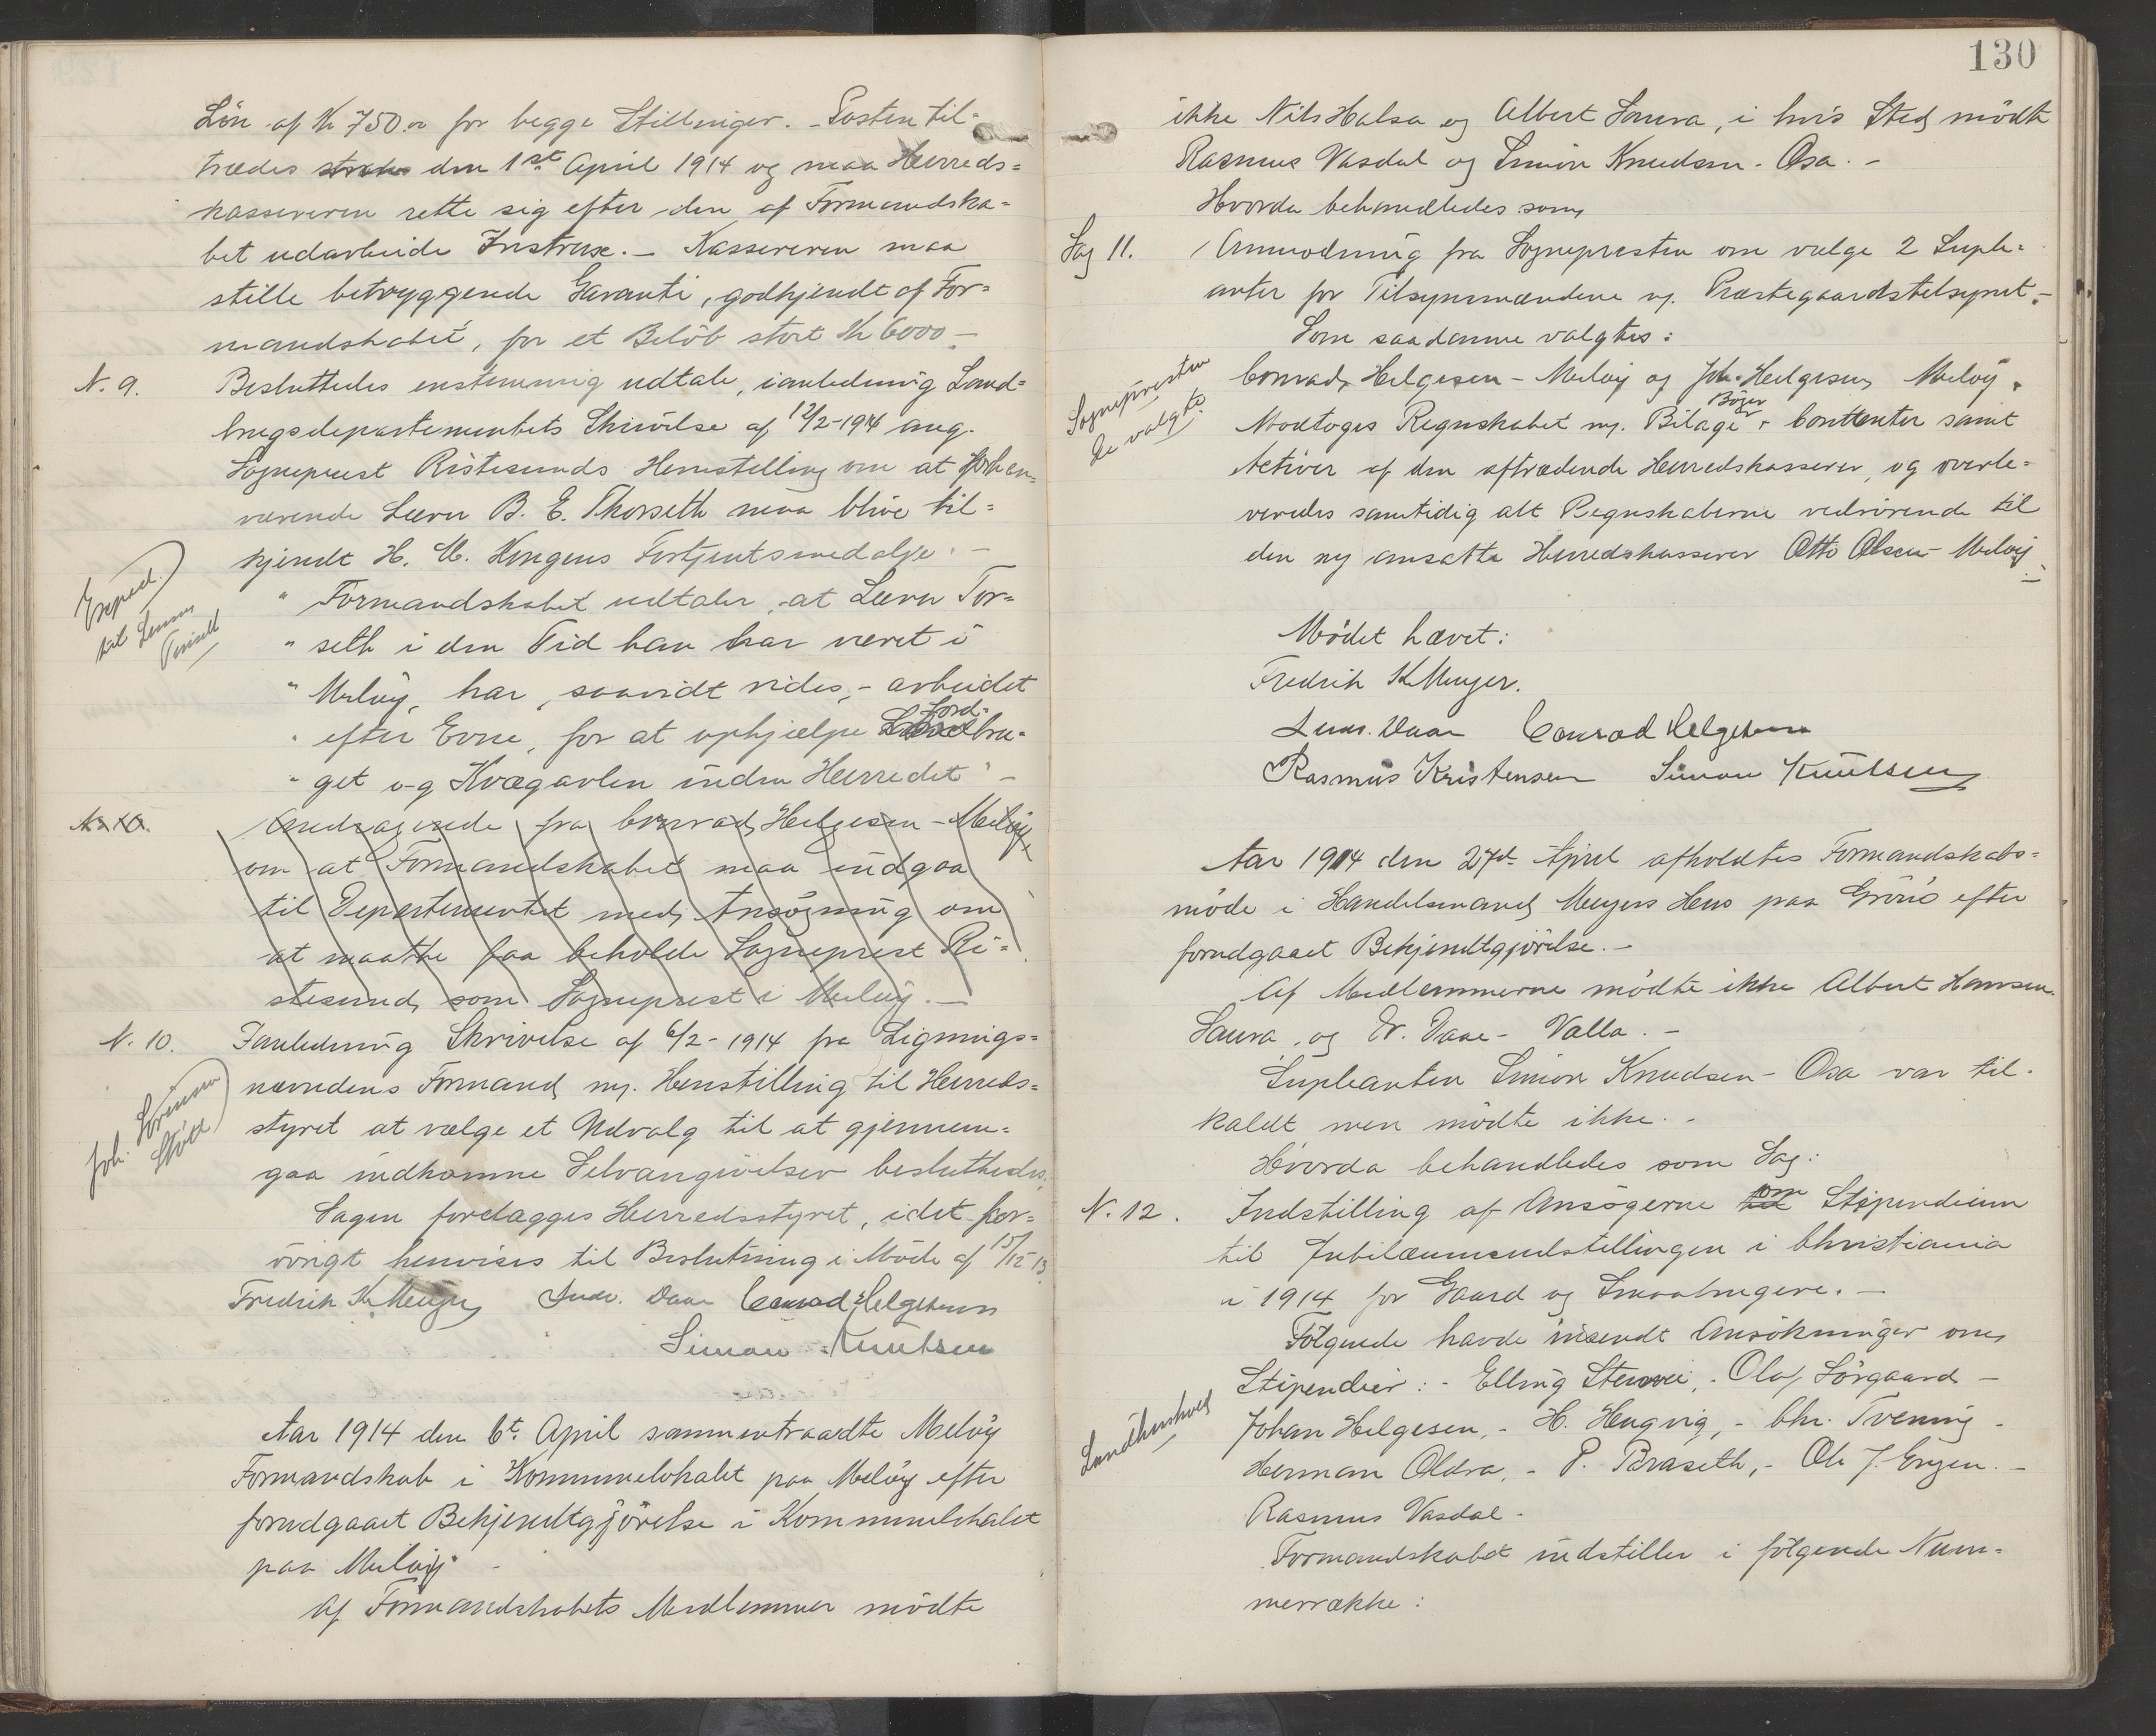 Lön af Kr 750.00 for begge Stillinger. - Posten til-
trædes straks den 1st April 1914 og maa Herreds-
kassereren rette sig efter den af Formandska-
bet udarbeide Instrux. - Kassereren maa
stille betryggende Garanti, godkjendt af For-
mandskabet, for et Belöb stort Kr 6000.-
N. 9. Besluttedes enstemmig udtale, i anledning Land-
brugsdepartementets Skrivelse af 12/2-1914 ang.
Sogneprest Ristesunds Henstilling om at forhen-
værende Læreu B. E. Thorseth maa blive til-
kjendt H. M. Kongens Fortjentsmedalje. -
Exped.
til Lærer
" Formandskabet udtaler, at Lærer Tor-
" seth i den Tid han har været i
" Melöy, har, saavidt vides, - arbeidet
" efter Evne, for at ophjælpe Jord-
bru-
" get og Kvægavlen inden Herredet" -
N. 10. Andragende fra Conrad Helgesen - Melöy
om at Formandskabet maa indgaa
til Departementet med Ansögning om
at maatte faa beholde Sogneprest Ri-
stesund som Sogneprest i Melöy. -
N. 10. I anledning Skrivelse af 6/2-1914 fra Lignings-
nævndens Formand m. Henstilling til Herreds-
styret at vælge et Udvalg til at gjennem-
gaa indkomne Selvangivelser besluttedes:
Joh. Sörensen
Stött
Sagen forelægges Herredsstyret, idet for-
övrigt henvises til Beslutning i Möde af 15/12 13.
Fredrik K. Meyer Ludv. Daae Conrad Helgesen
Simon Knutsen
Aar 1914 den 6t. April sammentraadte Melöy
Formandskab i Kommunelokalet paa Melöy efter
forudgaaet Bekjendtgjörelse i Kommunelokalet
paa Melöy -
Af Formandskabets Medlemmer mödte
130
ikke Nils Halsa og Albert Saura, i hvis Sted mödte
Rasmus Vasdal og Simon Knudsen - Osa. -
Hvorda behandledes som
Sag 11. Anmodning fra Sognepresten om vælge 2 Suple-
anter for Tilsynsmændene v. Præstegaardstilsynet. -
Som saadanne valgtes:
Sognepresten
de valgte.
Conrad Helgesen - Melöy og Joh. Helgesen Melöy.
Modtoges Regnskabet m. Bilage
Böger
r Contanter samt
Activer af den aftrædende Herredskasserer, og overle-
veredes samtidig alt Regnskaberne vedrörende til
den ny ansatte Herredskasserer Otto Olsen - Melöy
Mödet hævet:
Fredrik K. Meyer.
Ludv. Daae Conrad Helgesen
Rasmus Kristensen Simon Knutsen
Aar 1914 den 27de April afholdtes Formandskabs-
möde i Handelsmand Meyers Hus paa Grönö efter
forudgaaet Bekjendtgjörelse. -
Af Medlemmerne mödte ikke Albert Hansen
Saura, og Dr. Daae - Valla. -
Supleanten Simon Knudsen - Osa var til-
kaldt men mödte ikke. -
Hvorda behandledes som Sag:
N. 12. Indstilling af Ansögerne om Stipendium
til Jubilæumsudstillingen i Christiania
i 1914 for Gaard og Smaabrugere. -
Fölgende havde insendt Ansökninger om
Stipendier: - Elling Stenvei, - Olaf Sörgaard -
Johan Helgesen, - H. Hengvig, - Chr. Tvening -
Herman Oldra, - P. Braseth, - Ole J. Engen. -
Rasmus Vasdal -
Formandskabet indstiller i fölgende Num-
merrække: